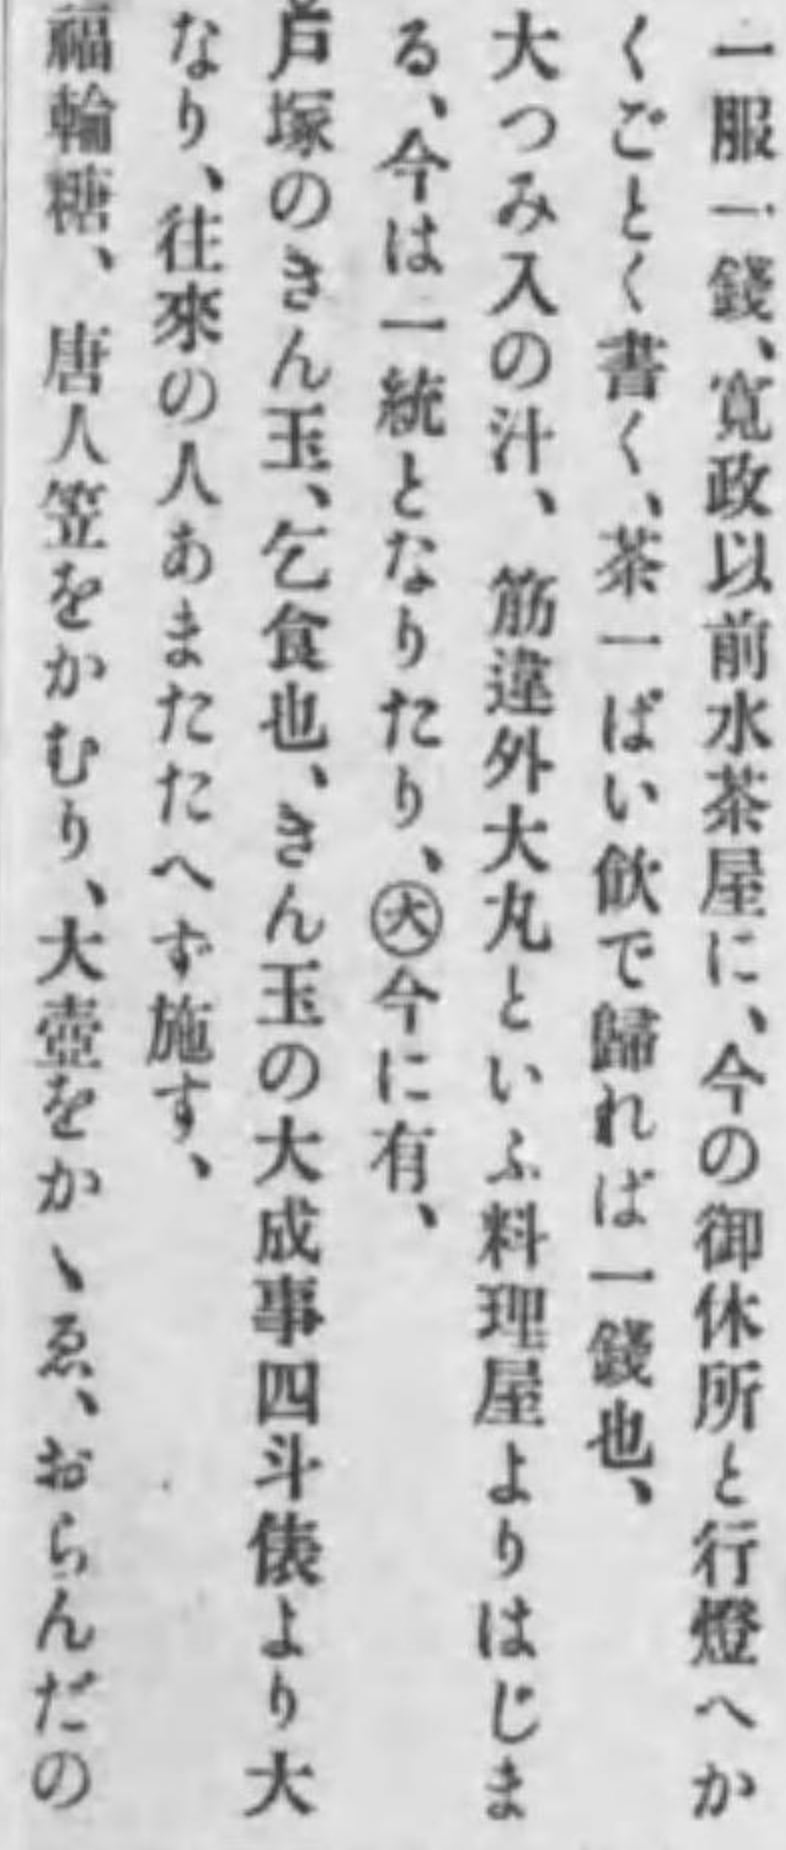 一服一錢、寬政以前水茶屋に、今の御休所と行燈へか
くごとく書く、茶一ぱい飮で歸れば一錢也、
大つみ入の汁、筋違外大丸といふ料理屋よりはじま
る、今は一統となりたり、㊅今に有、
戸塚のきん玉、乞食也、きん玉の大成事四斗俵より大
なり、往來の人あまたたへず施す、
福輪糖、唐人笠をかむり、大壺をかゝゑ、おらんだの